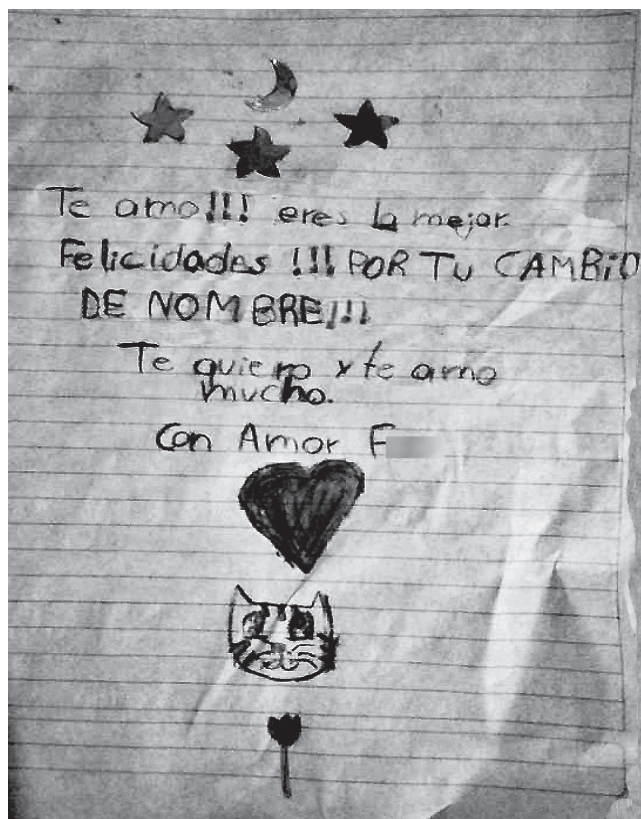 Te amo!!! eres la mejor
Felicidades !!! POR TU CAMBiO
DE NOMBRE!!!
Te quiero y te amo
mucho.
Con Amor F